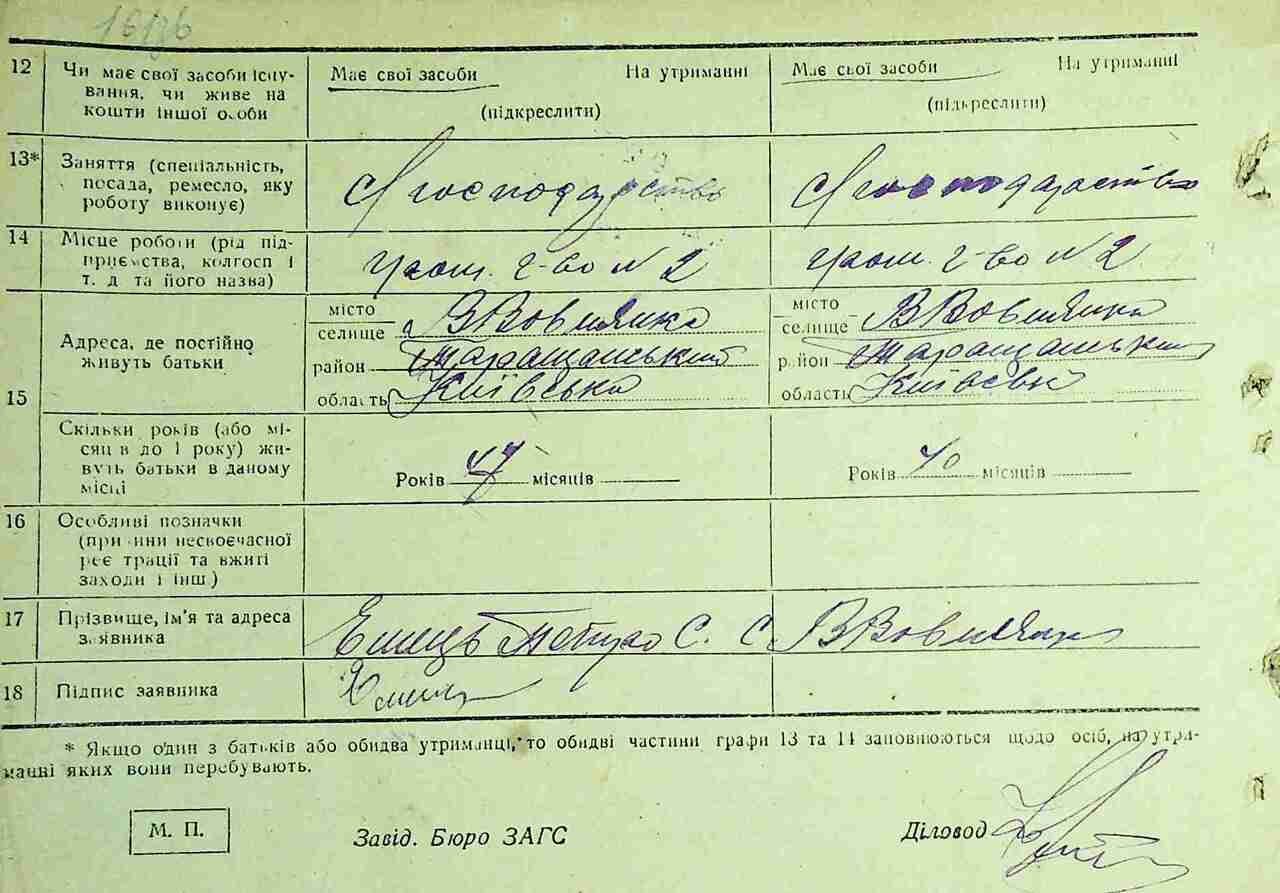 16/36
12 Чи має свої засоби існу- Має свої засоби На утриманні Має свої засоби На утриманні
вання, чи живе на (підкреслити) (підкреслити)
кошти іншої особи
13* Заняття (спеціальність,
посада, ремесло, яку С/господарство С/господарство
роботу виконує)
14 Місце роботи (рід під-
приємства, колгосп і г-во N 2 г-во N 2
т. д та його назва)
15 Адреса, де постійно живуть батьки
місто
селище В Вовнянка
район Таращанський
область Київська
місто
селище В Вовнянка
район Таращанський
область Київськ
Скільки років (або мі-
сяців до 1 року) жи-
вуть батьки в даному Років 47 місяців Років 40 місяців
місці
16 Особливі позначки
(причини несвоєчасної
реєстрації та вжиті
заходи і інш.)
17 Прізвище, ім'я та адреса
заявника Петро С. С В Вовнянка
18 Підпис заявника
* Якщо один з батьків або обидва утриманці, то обидві частини графи 13 та 14 заповнюються щодо осіб, на утри-
манні яких вони перебувають.
М. П. Завід. Бюро ЗАГС Діловод